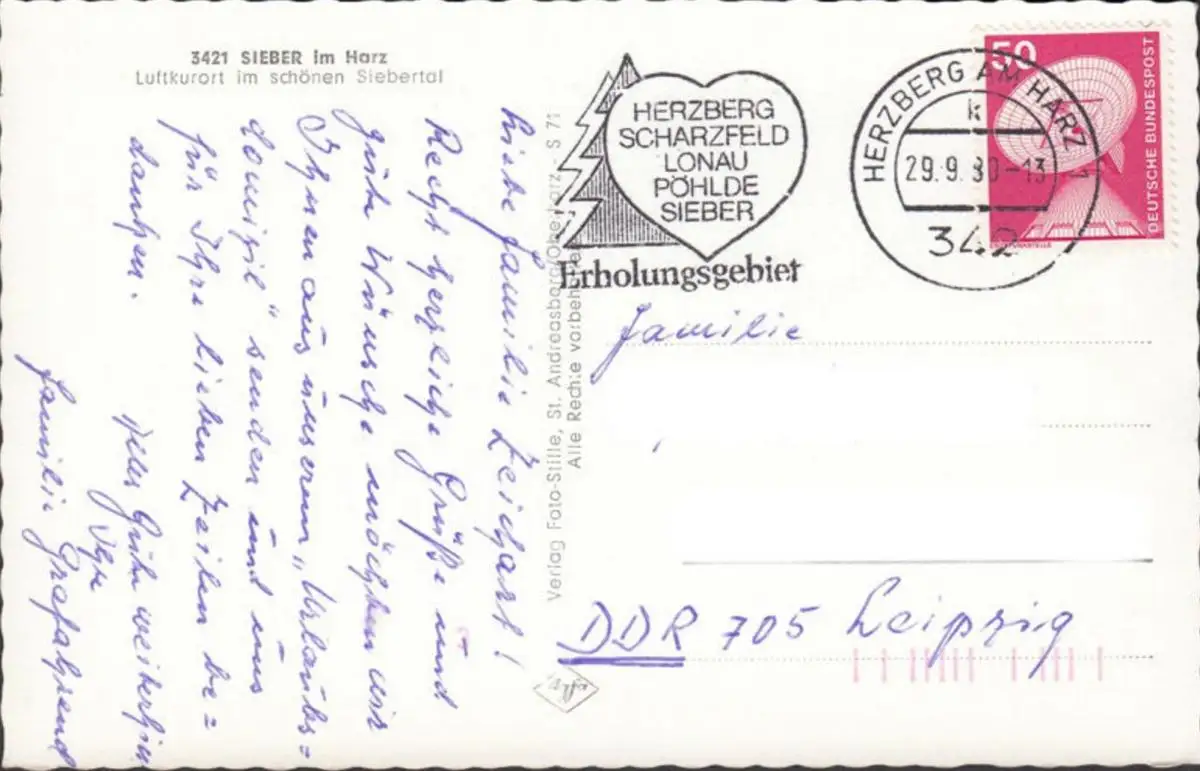 3421 SIEBER im Harz
Luftkurort im schönen Siebertal
Liebe Familie Zeichart!
Recht herzliche Grüße und
gute Wünsche möchten wir
Ihnen aus unserem „Urlaubs=
domizil" senden und uns
für Ihre lieben Zeilen be=
danken.
Alles Gute weiterhin
Ihre
Familie
Verlag Foto-Stille, St. Andreasberg/Oberharz - S 71
Alle Rechte vorbehalten
HERZBERG
SCHARZFELD
LONAU
PÖHLDE
SIEBER
Erholungsgebiet
HERZBERG AM HARZ 1
k
29.9.80-13
342
50
DEUTSCHE BUNDESPOST
Familie
DDR 705 Leipzig